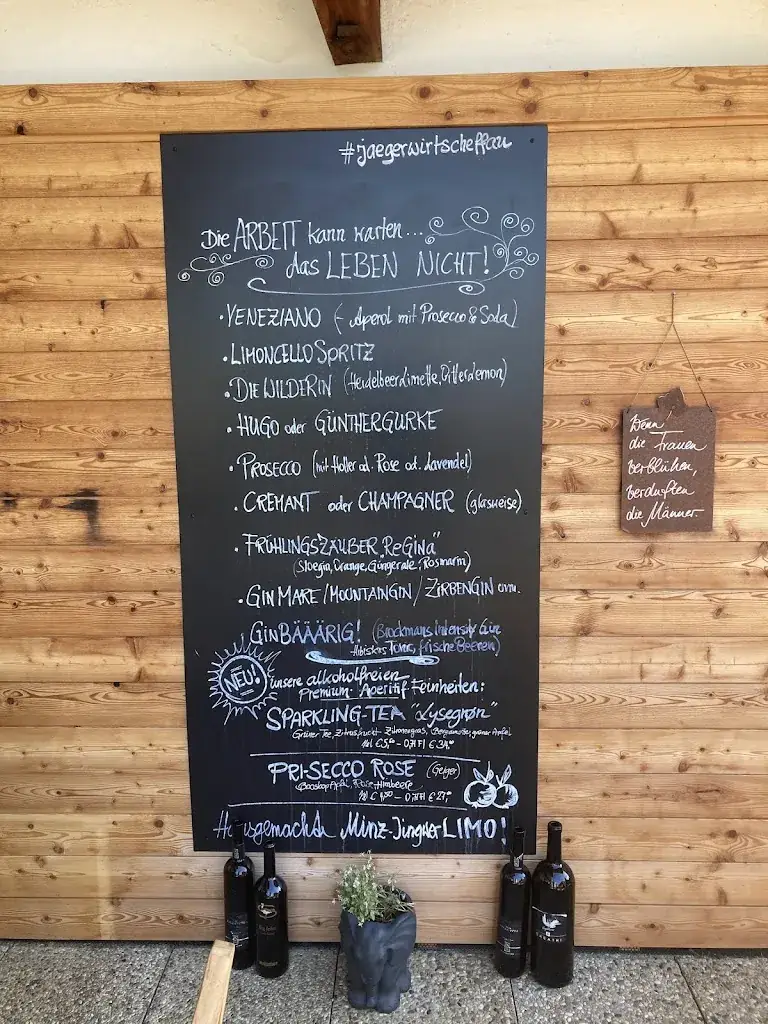 #jaegerwirtscheffau
Die ARBEIT kann warten...
das LEBEN NICHT!
• VENEZIANO (- Aperol mit Prosecco & Soda)
• LIMONCELLO SPRITZ
• DIE WILDERIN (Heidelbeer, Limette, Bitterlemon)
• HUGO oder GÜNTHERGURKE
• PROSECCO (mit Holler od. Rose od. Lavendel)
• CREMANT oder CHAMPAGNER (glasweise)
• FRÜHLINGSZAUBER "ReGina"
(Sloegin, Orange, Gingerale, Rosmarin)
• GIN MARE / MOUNTAINGIN / ZIRBENGIN uvm.
GIN BÄÄÄRIG! (Brockmans Intensly Gin
Hibiskus Tonic, frische Beeren)
NEU!
unsere alkoholfreien
Premium-Aperitif Feinheiten:
SPARKLING-TEA "Lysegrøn"
Grüner Tee, Zitrusfrucht - Zitronengras, Bergamotte, grüner Apfel
PRI-SECCO ROSE (Geiger)
Boskop Apfel, Rose, Himbeere
Hausgemachte Minz-Jngwer LIMO!
Wenn
die Frauen
verblühen,
verduften
die Männer